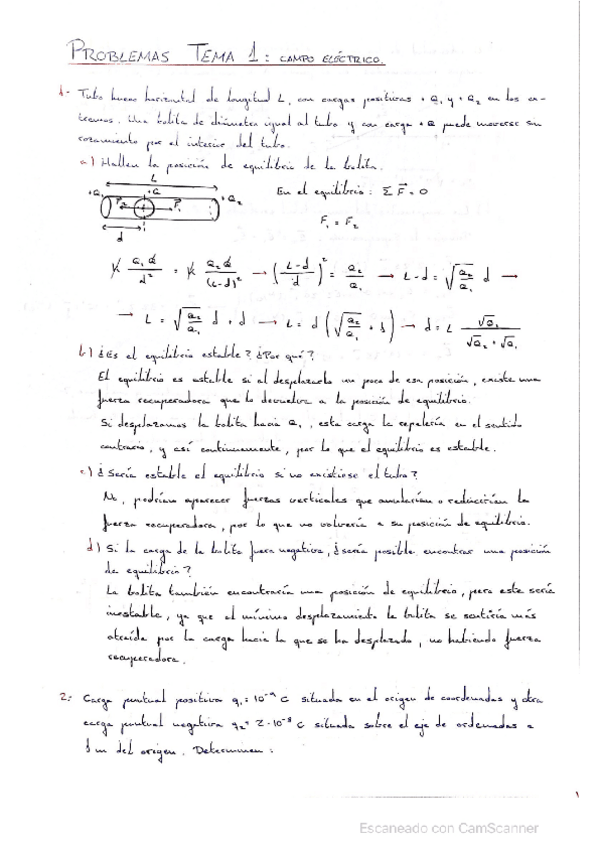 PROBLEMAS TEMA 1: CAMPO ELÉCTRICO.
1- Tubo hueco horizontal de longitud L, con cargas positivas +Q₁ y +Q₂ en los ex-
tremos. Una bolita de diámetro igual al tubo y con carga +Q puede moverse sin
rozamiento por el interior del tubo.
a) Hallen la posición de equilibrio de la bolita.
L
En el equilibrio: Σ F⃗ = 0
+Q₁ +Q +Q₂
F₂ F₁
F₁ = F₂
d
K Q₁Q/d² = K Q₂Q/(L-d)² → ((L-d)/d)² = Q₂/Q₁ → L-d = √(Q₂/Q₁) d →
→ L = √(Q₂/Q₁) d + d → L = d (√(Q₂/Q₁) + 1) → d = L √Q₁/(√Q₂ + √Q₁)
b) ¿Es el equilibrio estable? ¿Por qué?
El equilibrio es estable si al desplazarlo un poco de esa posición, existe una
fuerza recuperadora que lo devuelve a la posición de equilibrio.
Si desplazamos la bolita hacia Q₁, esta carga la repelería en el sentido
contrario, y así continuamente, por lo que el equilibrio es estable.
c) ¿Sería estable el equilibrio si no existiese el tubo?
No, podrían aparecer fuerzas verticales que anularían o reducirían la
fuerza recuperadora, por lo que no volvería a su posición de equilibrio.
d) Si la carga de la bolita fuera negativa, ¿sería posible encontrar una posición
de equilibrio?
La bolita también encontraría una posición de equilibrio, pero este sería
inestable, ya que al mínimo desplazamiento la bolita se sentiría más
atraída por la carga hacia la que se ha desplazado, no habiendo fuerza
recuperadora.
2- Carga puntual positiva q₁ = 10⁻⁹ C situada en el origen de coordenadas y otra
carga puntual negativa q₂ = 2·10⁻⁸ C situada sobre el eje de ordenadas a
1 m del origen. Determinen:
Escaneado con CamScanner